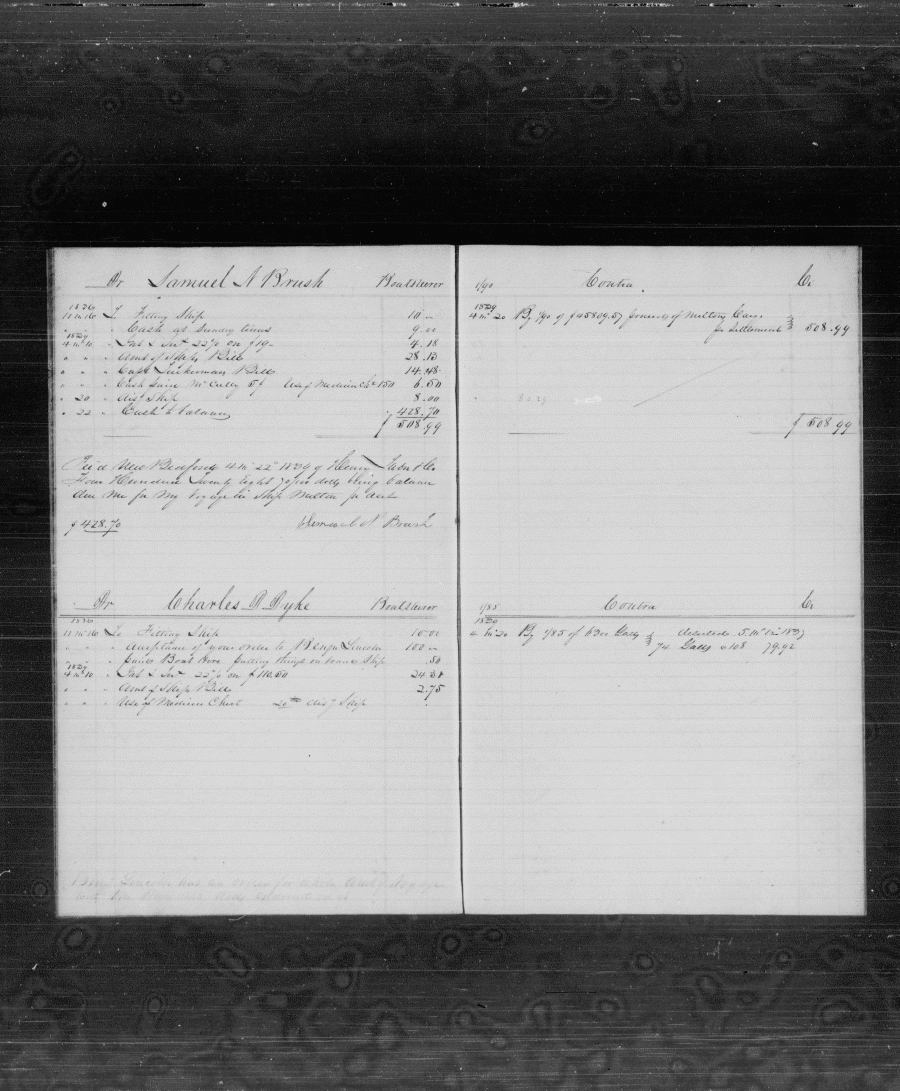 Dr Samuel N Brush Boatsteerer
1836
11 mo 16 To Fitting Ship 10 —
" " " Cash at Sunday times 9.00
1839
4 mo 10 " Int & Ins 22% on $19— 4.18
" " " Amt of Ships Bill 28.13
" " " Capt Tuckermans Bill 14.48
" " " Cash paid McCully 5$ Use of Medicine Cht 150 6.50
" 20 " disg Ship 8.00
" 22 " Cash to balance 428.70
$ 508.99
Rec'd New Bedford 4 mo 22 1839 of Henry & Co
Four Hundred Twenty eight 70/100 dolls being balance
due me for my voyage in Ship Milton pr acct
$428.70 Samuel N Brush
Dr Charles D Dyke Boatsteerer
1836
11 mo 16 To Fitting Ship 10.00
" " " Acceptance of your order to Benjn Lincoln 100 —
" " " paid Boat Hire putting things on board Ship .50
1839
4 mo 10 " Int & Ins 22% on $110.50 24.31
" " " Amt of Ships Bill 2.75
" " " Use of Medicine Chest 20th disg Ship
Benj Lincoln has an order for whole
1/90 Contra Cr
1839
4 mo 20 By 1/90 of $45809.57 proceeds of Miltons Cargo
for Settlement 508.99
$ 508.99
1/85 Contra Cr
1839
4 mo 20 By 1/85 of Galls deserted 5 mo 1837
74 Galls @ 108 79.92